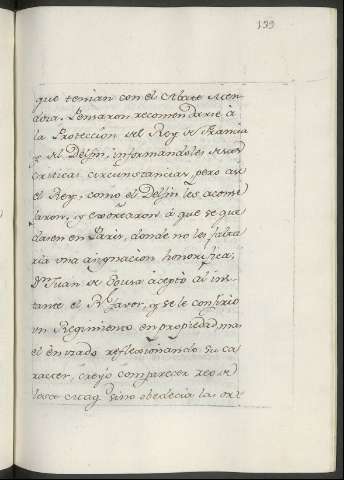 199
que tenian con el Abate Men-
doza. Pensaron recomendarse à
la Proteccion del Rey de Francia
y del Delfin, informandoles de sus
criticas circunstancias, pero asi
el Rey, como el Delfin les aconse
jaron, y exortaron à que se que
dasen en Paris, donde no les falta
ria una asignacion honorifica;
Dn Juan de Sousa aceptò al ins-
tante el Rl favor, y se le confirio
un Regimiento en propiedad, mas
el enviado reflexsionando su ca-
racter, creyó comparecer reo de
lesa Mag. sino obedecia las or